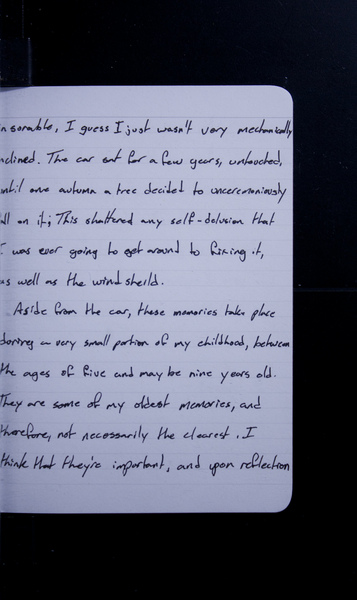 insorable, I guess I just wasn't very mechanically
inclined. The car sat for a few years, untouched,
until one autumn a tree decided to unceremoniously
fall on it; This shattered any self-delusion that
I was ever going to get around to fixing it,
as well as the wind sheild.
Aside from the car, these memories take place
during a very small portion of my childhood, between
the ages of five and maybe nine years old.
They are some of my oldest memories, and
therefore, not necessarily the clearest. I
think that they're important, and upon reflection